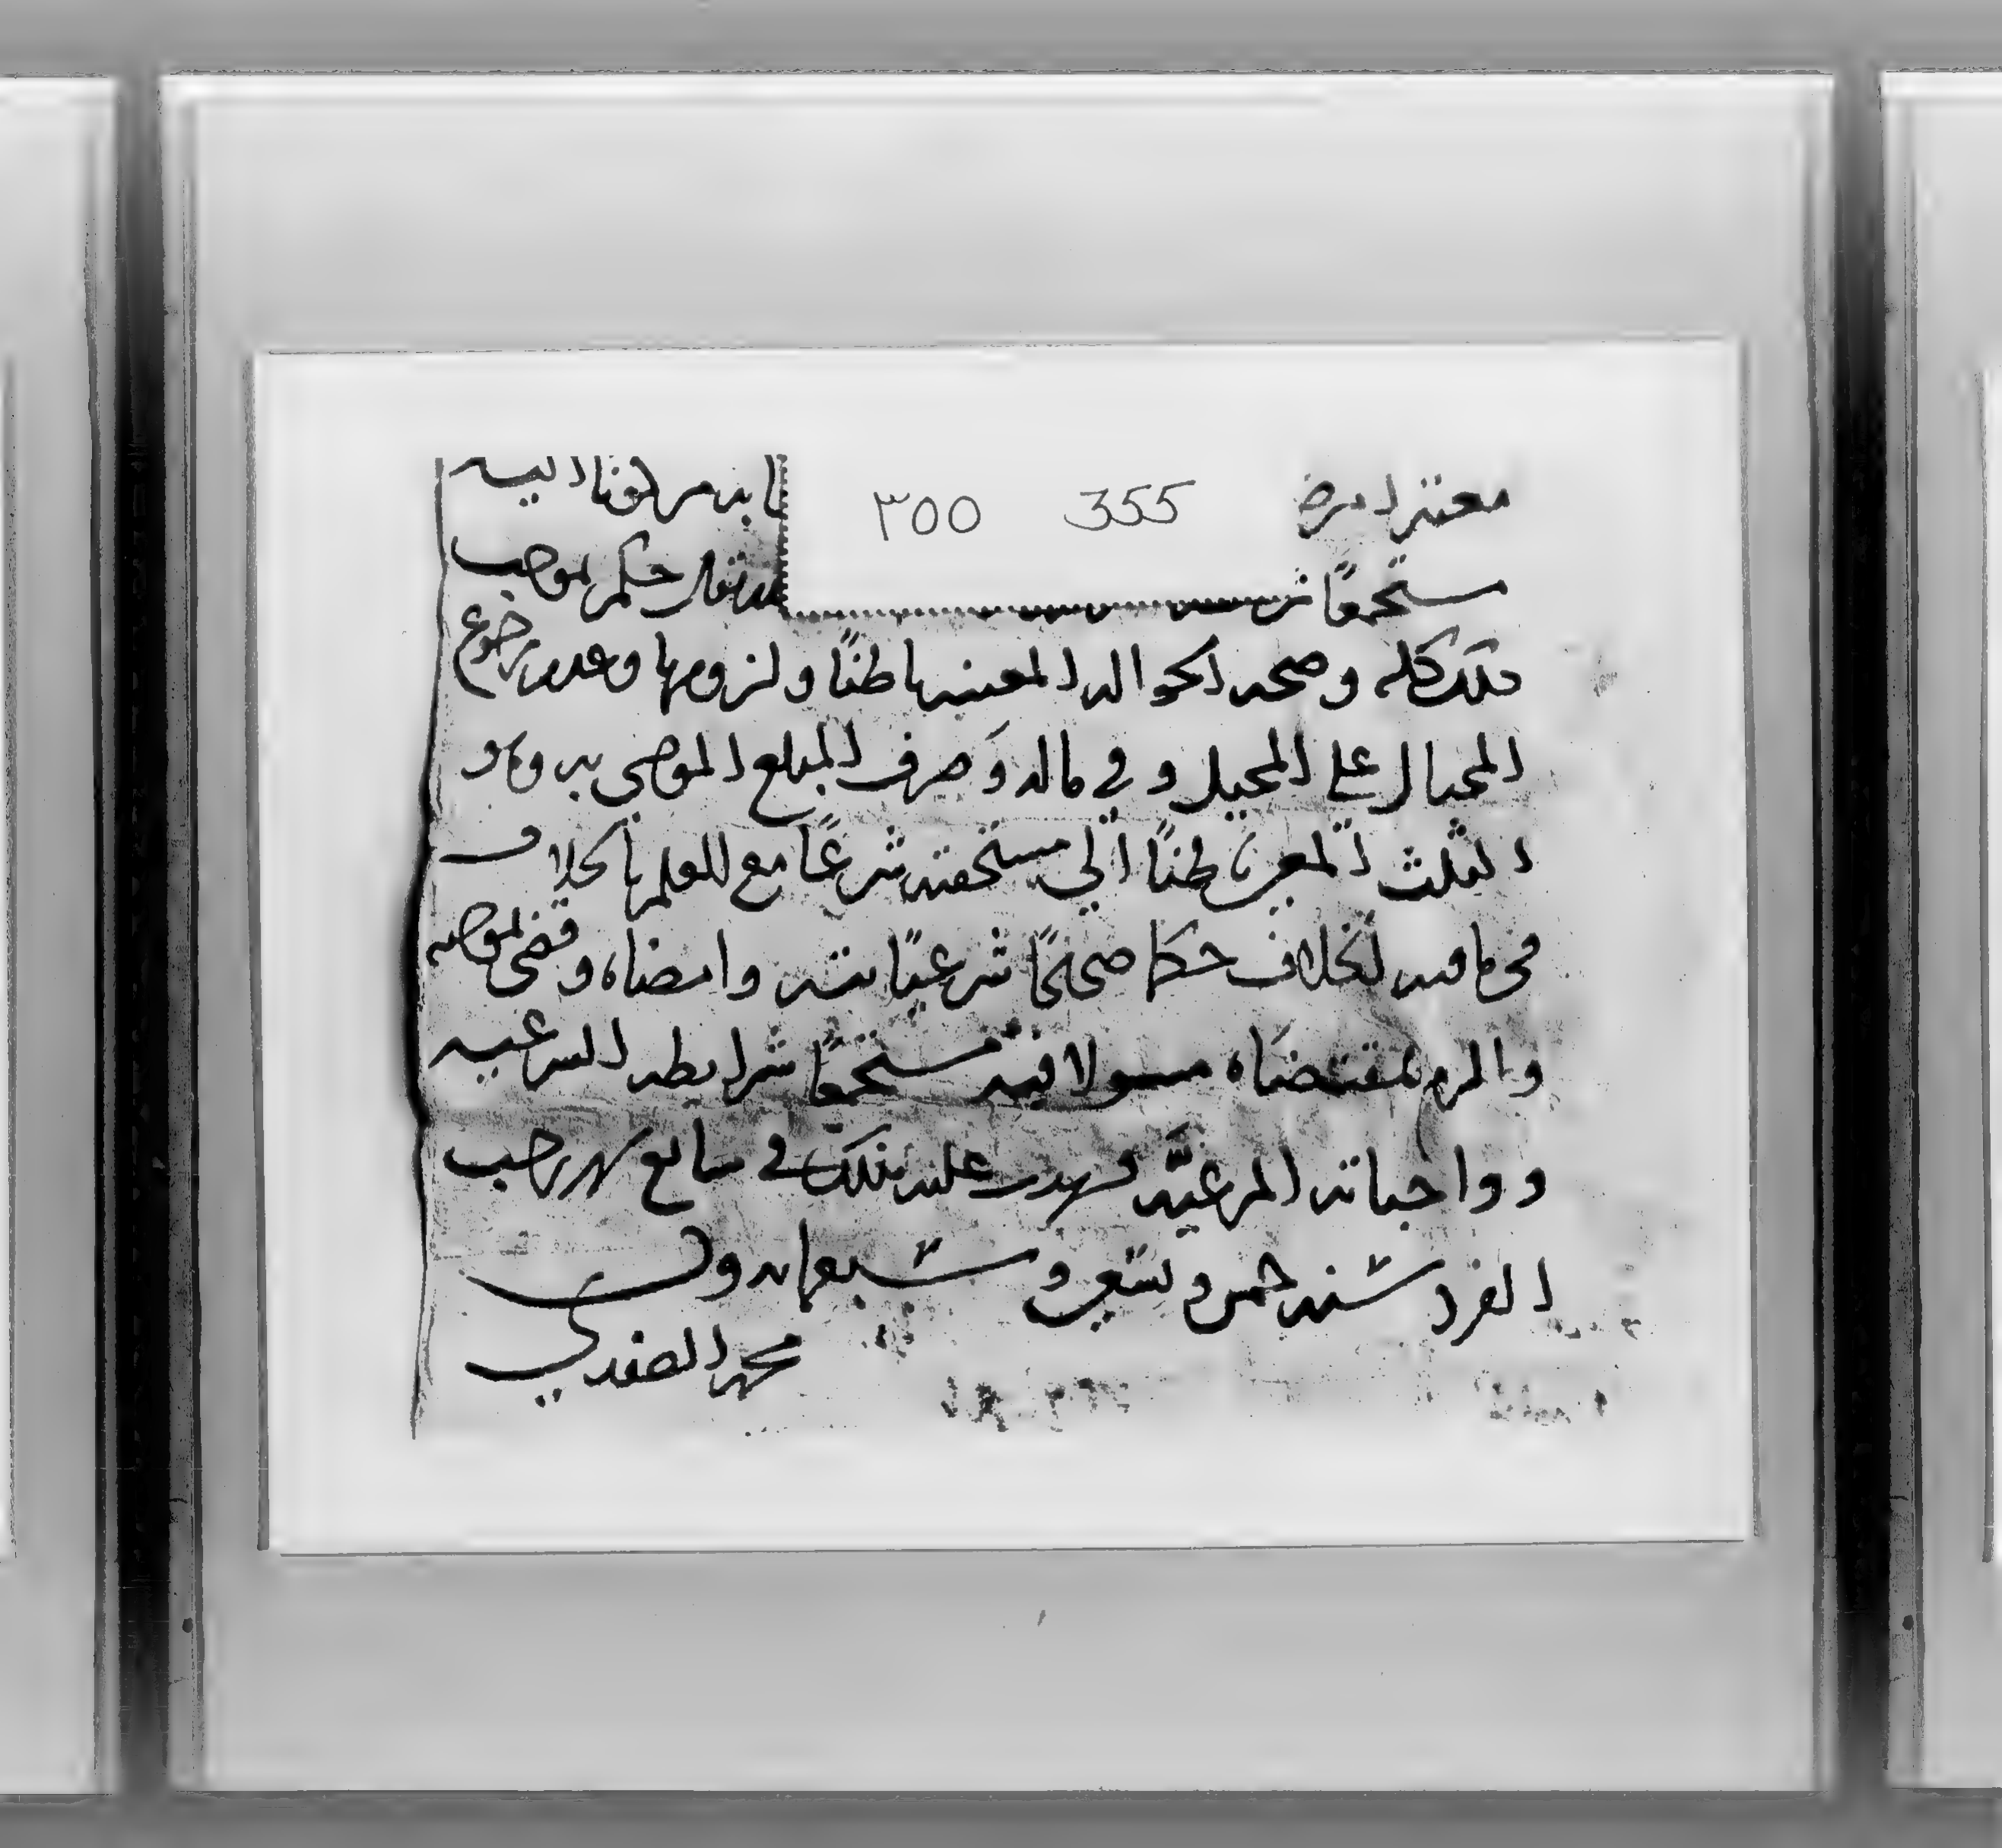 معتبرا مرضيا ٣٥٥ 355 به مرفوقا اليه
مستجمعًا حكم بموجب
ذلك كله وصحة الحوالة المعينة باطنًا ولزومها وعدم رجوع
المحتال على المحيل وفي ماله وَصرف المبلغ الموصى به وهو
الثلث المعين باطنًا الي مستحقته شرعًا مع العلم بالخلاف
فيما فيه الخلاف حكما صحيحًا شرعيًا تته وامضاه وقضى بموجبه
والزم بمقتضاه مسولا فيه مستجمعًا شرايطه الشرعية
وواجباته المرعيَّه شهدت عليه بذلك في سابع شهر رجب
الفرد سنة خمس وتسعين وسبعمائة وكتب
محمد الصفدي